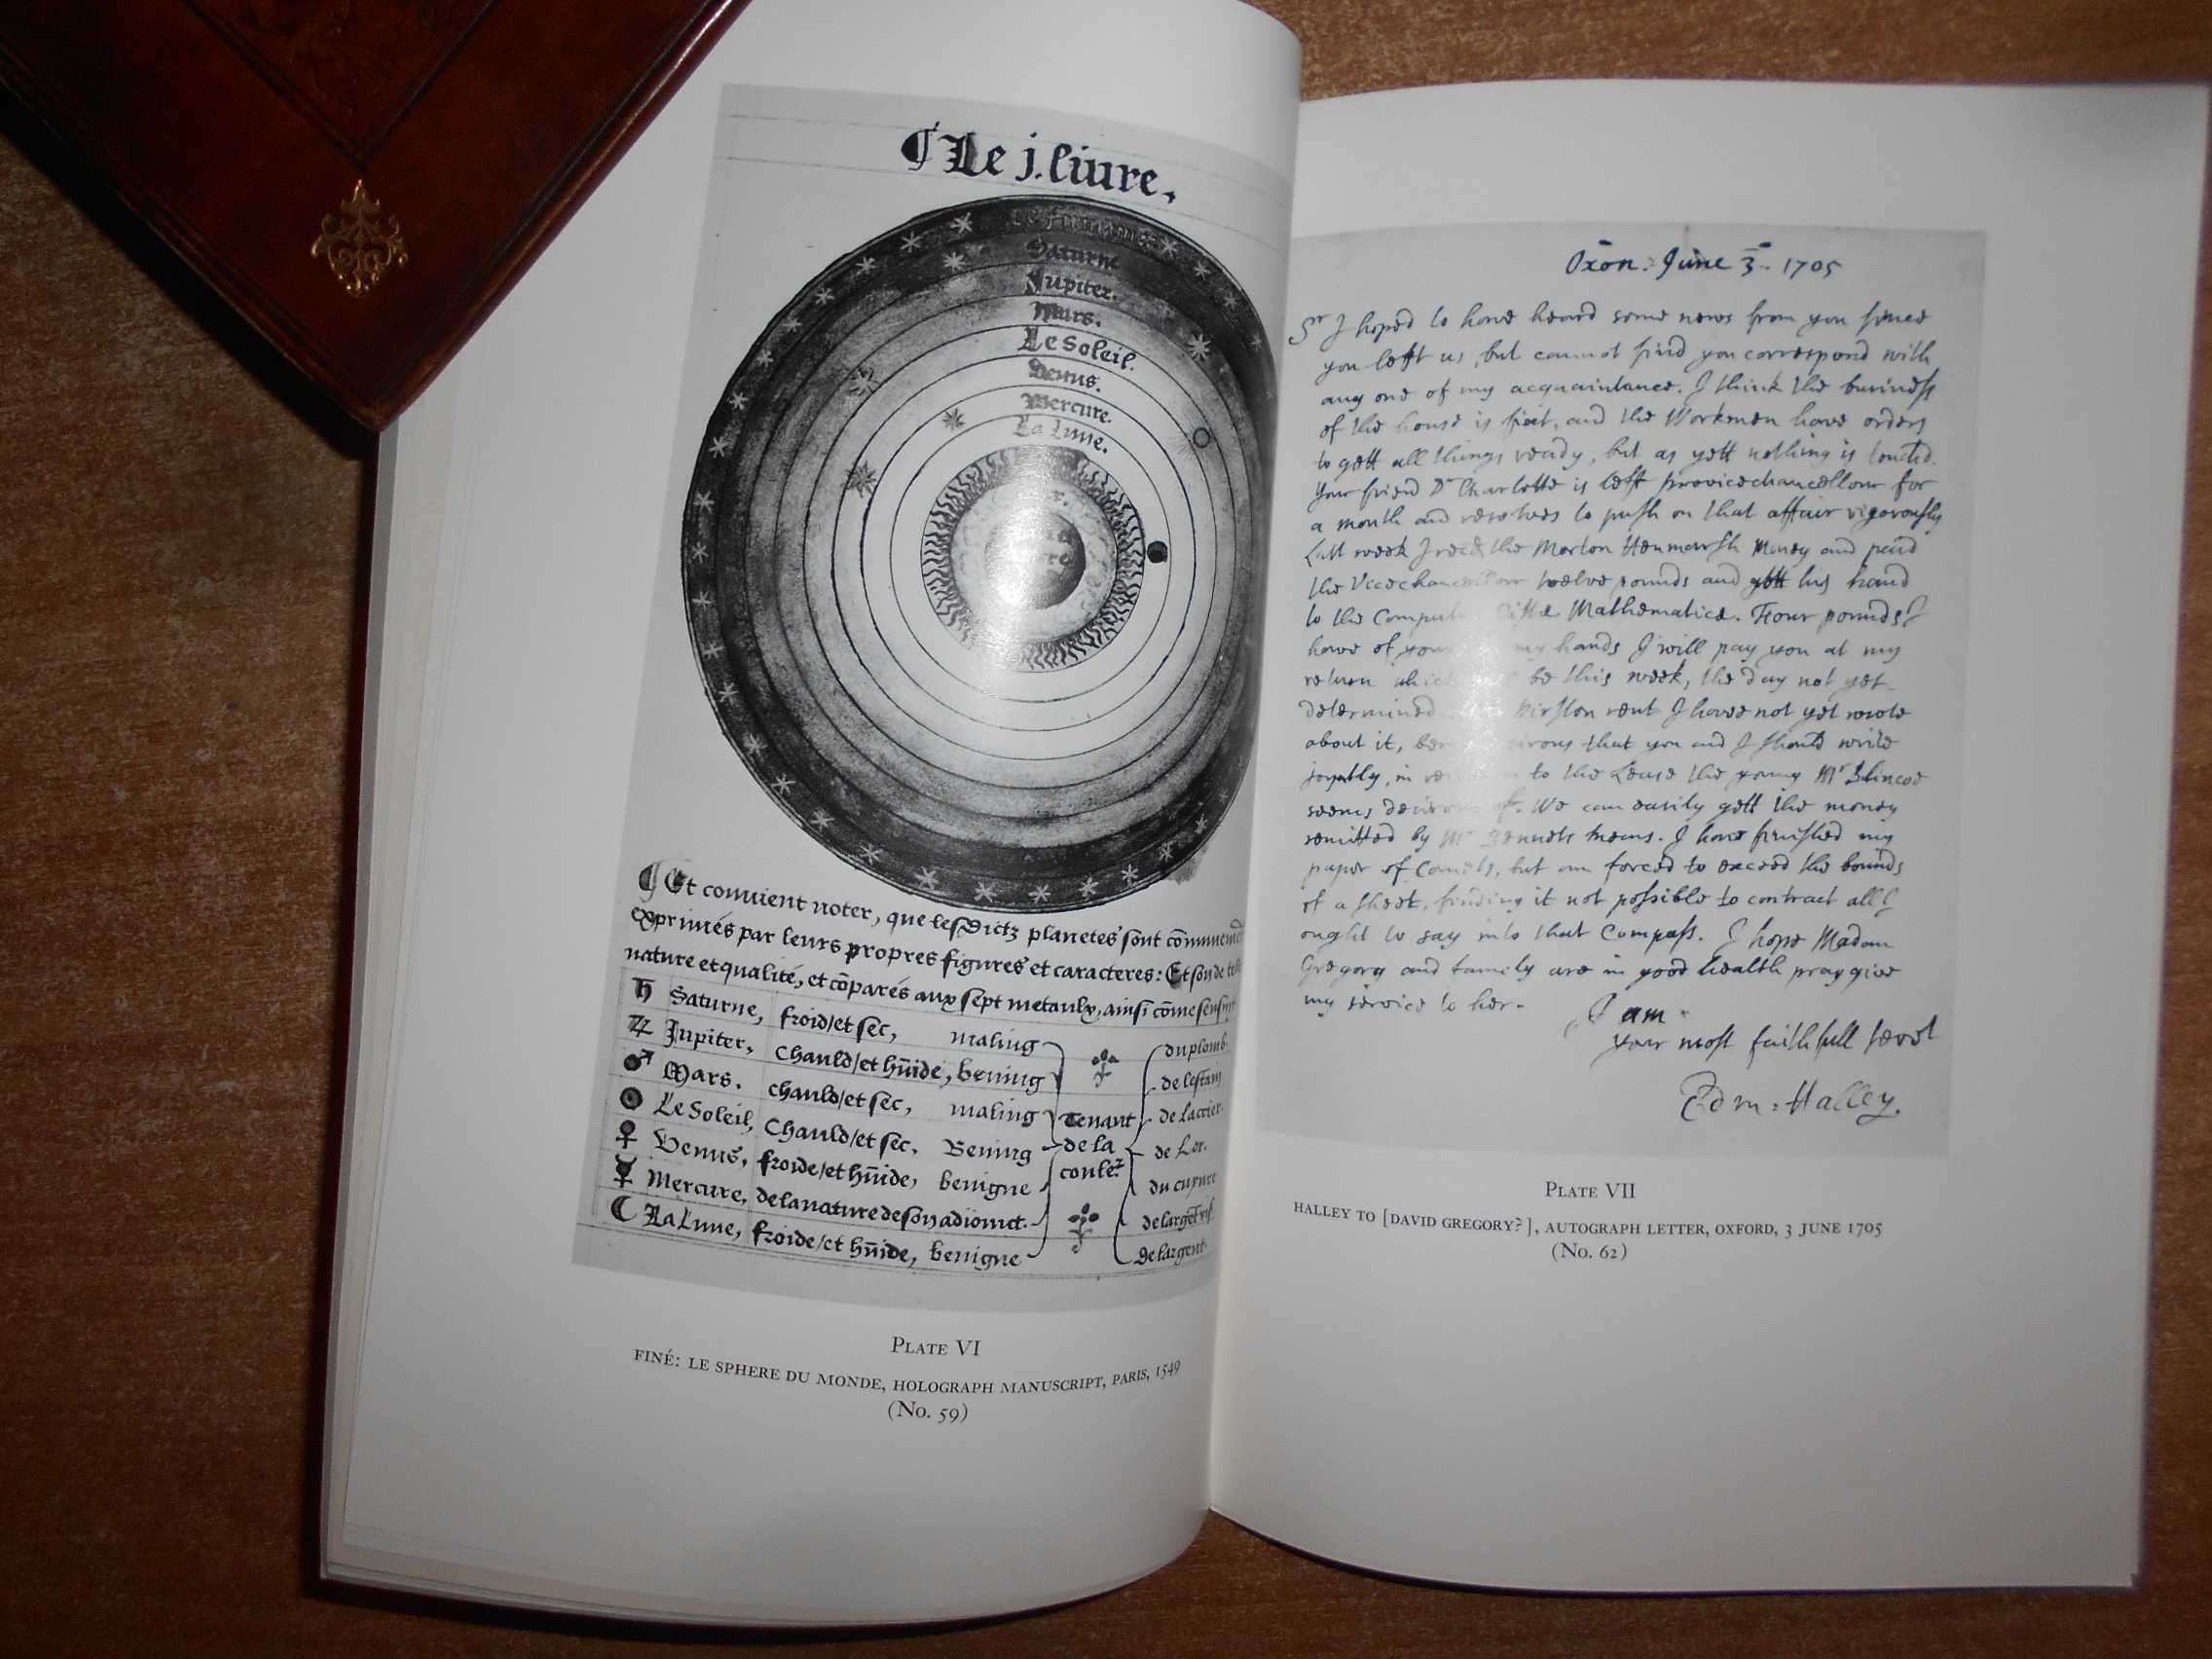 Le j. liure.
Le firmament
Saturne
Jupiter.
Mars.
Le Soleil.
Venus.
Mercure.
La Lune.
Et conuient noter, que lesdictz planetes sont cōmunemēt
exprimés par leurs propres figures et caracteres: Et son de telle
nature et qualité, et cōparés aux sept metaulx, ainsi cōme sensuyt
♄ Saturne, froid/et sec, maling du plomb.
♃ Jupiter, Chauld/et hūide, bening de lestam
♂ Mars. chauld/et sec, maling Tenant de lacier.
☉ Le Soleil, Chauld/et sec, Bening de la de Lor.
♀ Venus, froide/et hūide, benigne coule.r du cuyure
☿ Mercure, de la nature de son adioinct. de largēt vif.
☾ La Lune, froide/et hūide, benigne de largent.
Plate VI
FINÉ: LE SPHERE DU MONDE, HOLOGRAPH MANUSCRIPT, PARIS, 1549
(No. 59)
Oxon. June 3. 1705
Sr I hoped to have heard some news from you since
you left us, but cannot find you correspond with
any one of my acquaintance. I think the business
of the house is fixt, and the Workmen have orders
to gett all things ready, but as yett nothing is touched.
Your friend Dr Charlette is left provicechancellour for
a month and resolves to push on that affair vigorously
Last week I recd the Morton Henmarsh Money and paid
the Vicechancellour twelve pounds and gott his hand
to the Mathematice. Four pounds I
have of my hands I will pay you at my
return which be this week, the day not yet
determined. rent I have not yet wrote
about it, being desirous that you and I should write
joyntly, in to the Lease the young Mr Blincoe
seems desirous of. We can easily gett the money
remitted by Mr means. I have finished my
paper of Comets, but am forced to exceed the bounds
of a sheet, finding it not possible to contract all I
ought to say into that Compass. I hope Madam
Gregory and family are in good health pray give
my service to her.
I am
your most faithfull servt
Edm: Halley.
Plate VII
HALLEY TO [DAVID GREGORY?], AUTOGRAPH LETTER, OXFORD, 3 JUNE 1705
(No. 62)